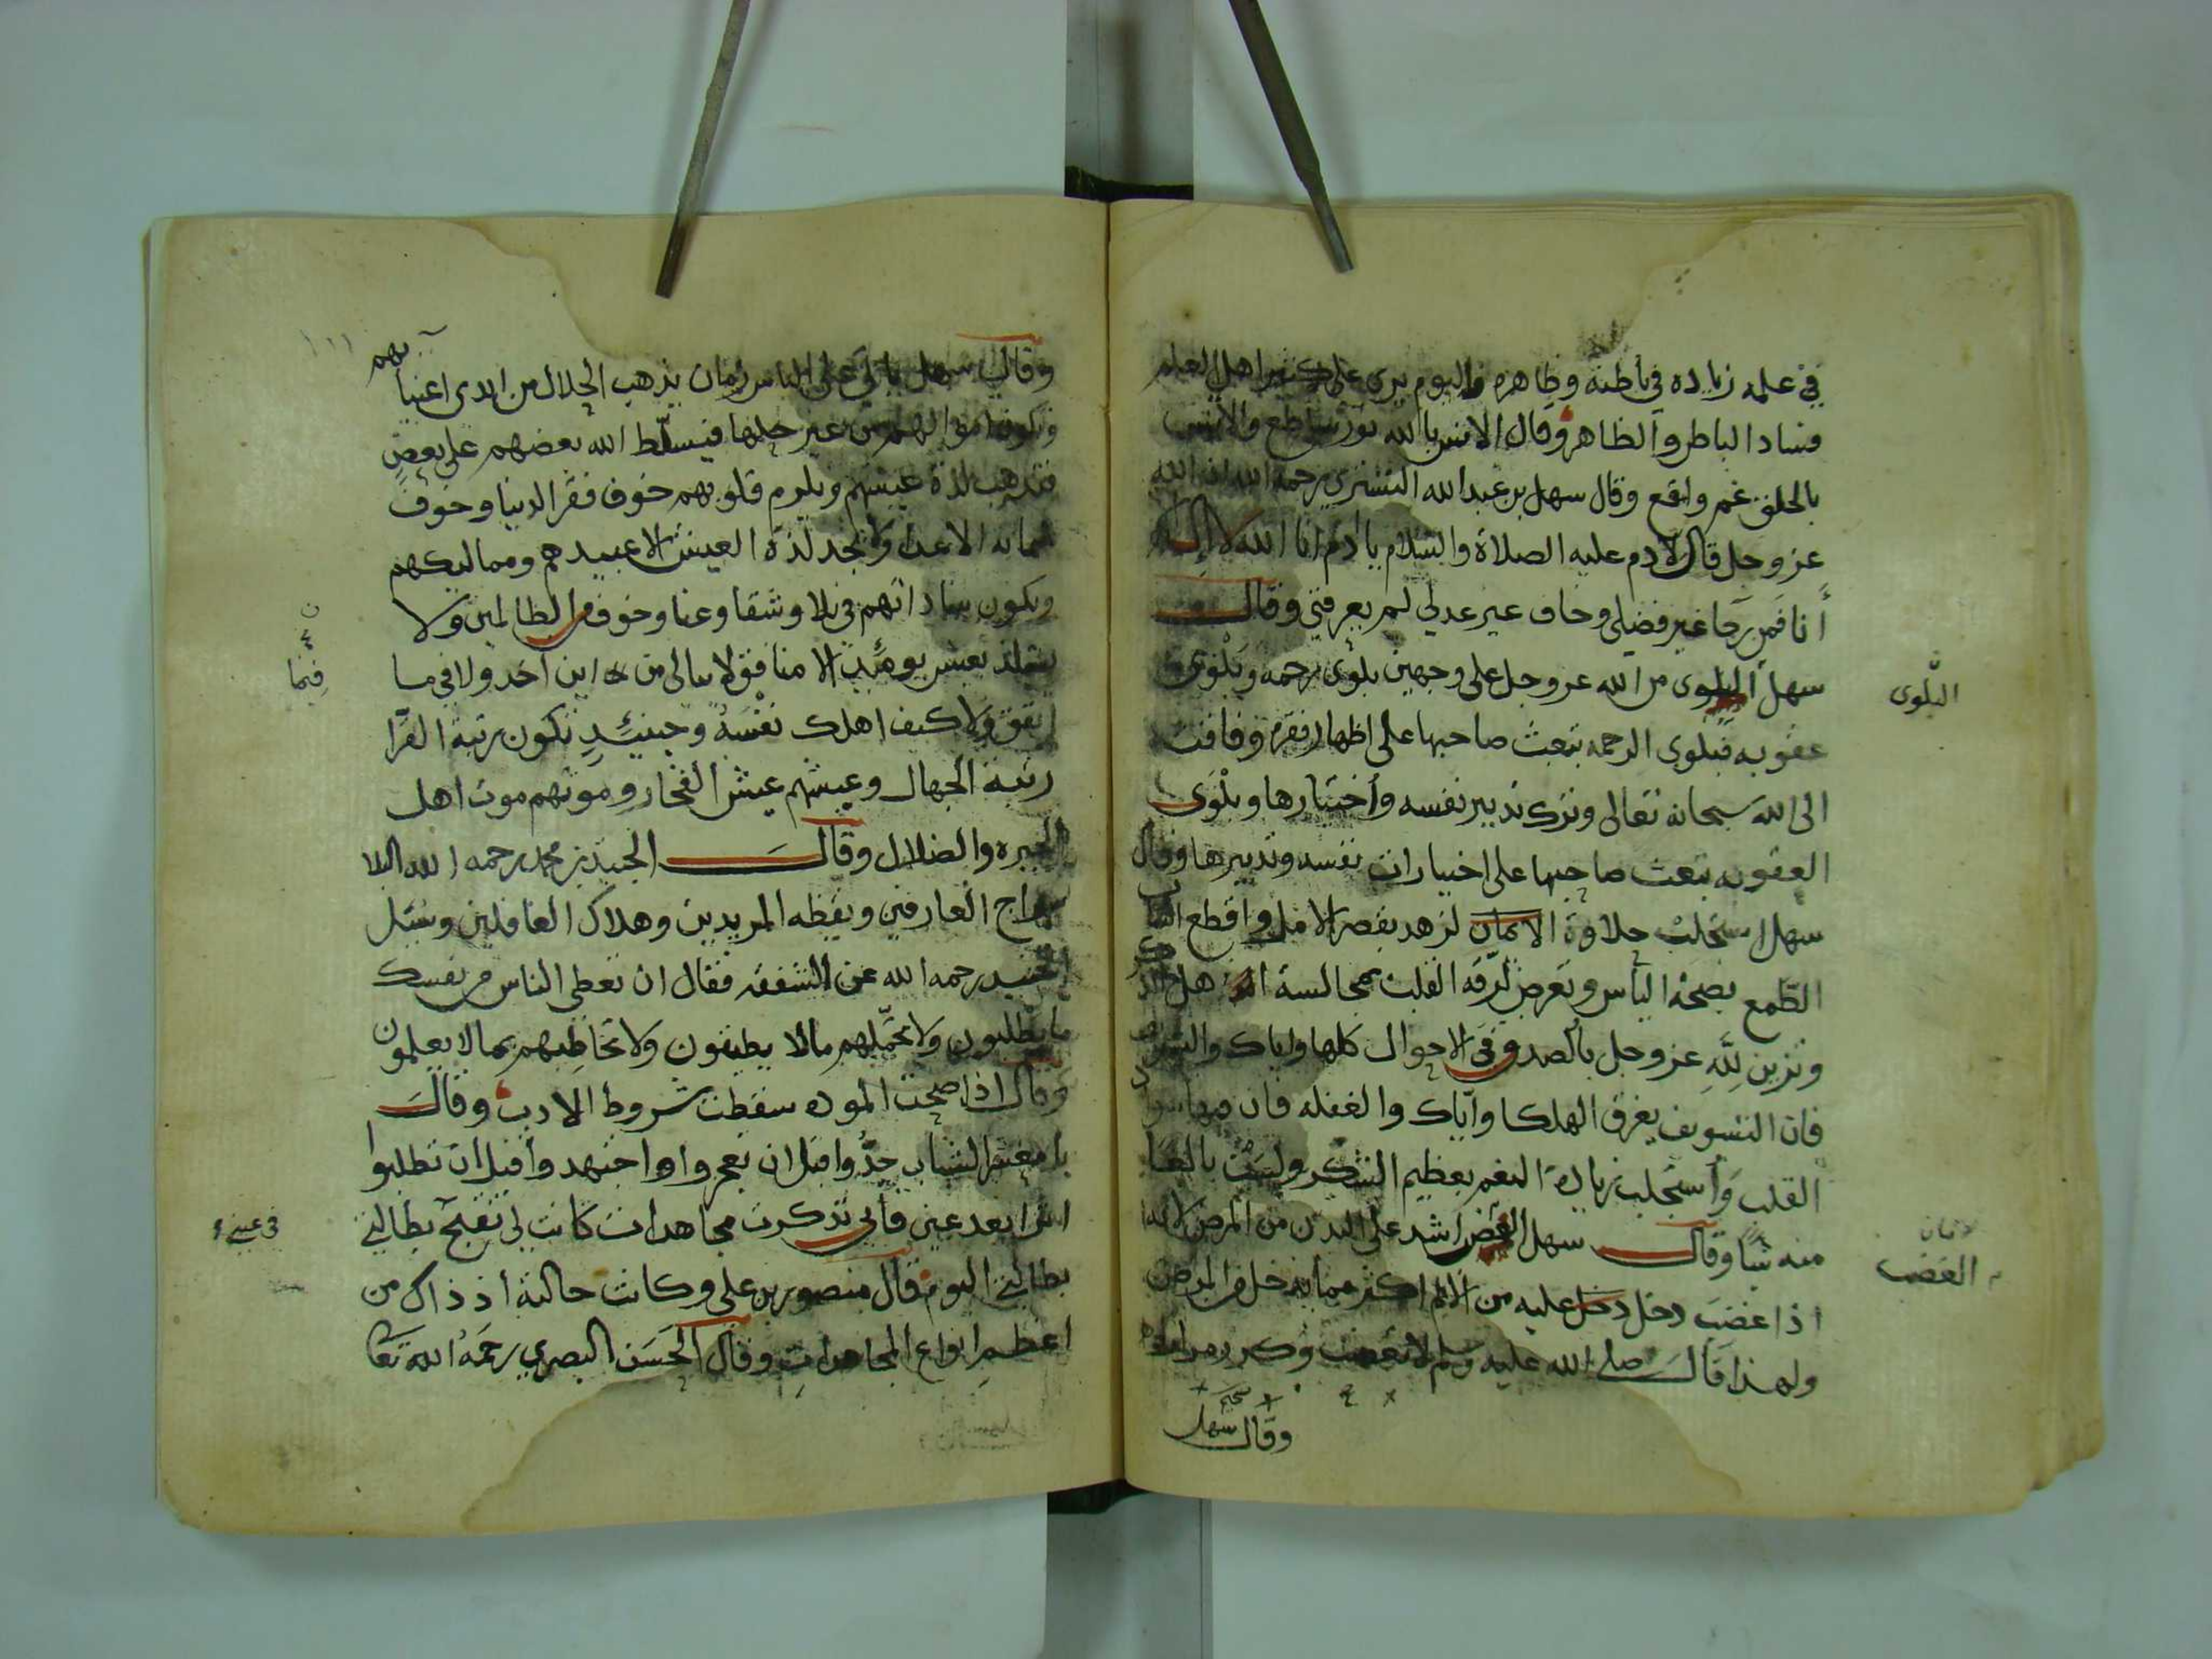 في علمه زياده في باطنه وظاهره واليوم يرى على كثير اهل العلم
فساد الباطن والظاهر وقال الانس بالله نور ساطع والانس
بالخلق غم واقع وقال سهل بن عبد الله التستري رحمه الله ان الله
عز وجل قال لآدم عليه الصلاة والسلام يا ادم انا الله لا اله الا
أنا فمن رجا غير فضلي وخاف غير عدلي لم يعرفني وقال
سهل البلوى من الله عز وجل على وجهين بلوى رحمه وبلوى
البلوى
عقوبه فبلوى الرحمه تبعث صاحبها على اظهار فقره وفاقته
الى الله سبحانه تعالى وترك تدبير نفسه وأختيارها وبلوى
العقوبه تبعث صاحبها على اختيارات نفسه وتدبيرها وقال
سهل استجلب حلاوة الايمان لزهد بقصر الامل واقطع اسباب
الطمع بصحة اليأس وتعرض لرقه القلب بمجالسة اهل الذكر
وتزين لله عز وجل بالصدق في الاحوال كلها واياك والتسويف
فان التسويف يغرق الهلكا واياك والغفله فان فيها سواد
القلب وأستجلب زيادة النعم بعظيم الشكر وليس بالغا
منه شيا وقال سهل الغضب اشد على البدن من المرض لانه
لانه
الغضب
اذا غضب دخل دخل عليه من الالم اكثر مما يدخل من المرض
ولهذا قال صلى الله عليه وسلم لا تغضب وكرر مرارا
وقال سهل
وقال سهل يأتي على الناس زمان يذهب الحلال من ايدى اغنيائهم
وتكون اموالهم من غير حلها فيسلط الله بعضهم على بعض
فتذهب لذة عيشهم ويلزم قلوبهم خوف فقر الدنيا وخوف
شماته الاعدا ولا تجد لذة العيش الا عبيدهم ومماليكهم
وتكون ساداتهم في بلا وشقا وعنا وخوف من الظالمين ولا
يستلذ بعيش يومئذ الا منافق لا يبالي من اين اخذ ولا فيما
فيما
انفق ولا كيف اهلك نفسه وحينئذ تكون رتبة القرا
رتبة الجهال وعيشهم عيش الفجار وموتهم موت اهل
الحيره والضلال وقال الجنيد بن محمد رحمه الله البلا
سراج العارفين ويقظه المريدين وهلاك الغافلين وسئل
الجنيد رحمه الله عن الشفقه فقال ان تعطي الناس من نفسك
ما يطلبون ولا تحملهم مالا يطيقون ولا تخاطبهم بما لا يعلمون
وقال اذا صحت الموده سقطت شروط الادب وقال
يا معشر الشباب جدوا قبل ان تعجزوا واجتهدوا قبل ان تطلبوا
اثرا بعد عين فأني تذكرت مجاهدات كانت لي تقبح بطالتي
في عيني
بطالتي اليوم قال منصور بن علي وكانت حالته أذ ذاك من
اعظم انواع المجاهدات وقال الحسن البصري رحمه الله تعا
١١١